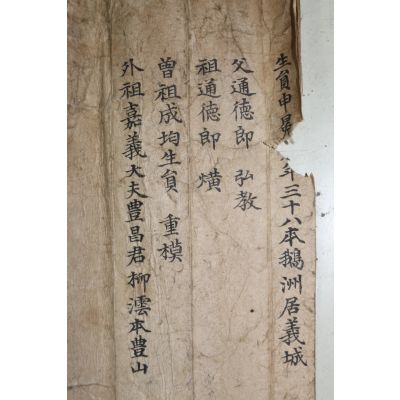 生員申 年三十八本鵝洲居義城
父通德郎 弘教
祖通德郎 熿
曾祖成均生員 重模
外祖嘉義大夫豊昌君柳澐本豊山